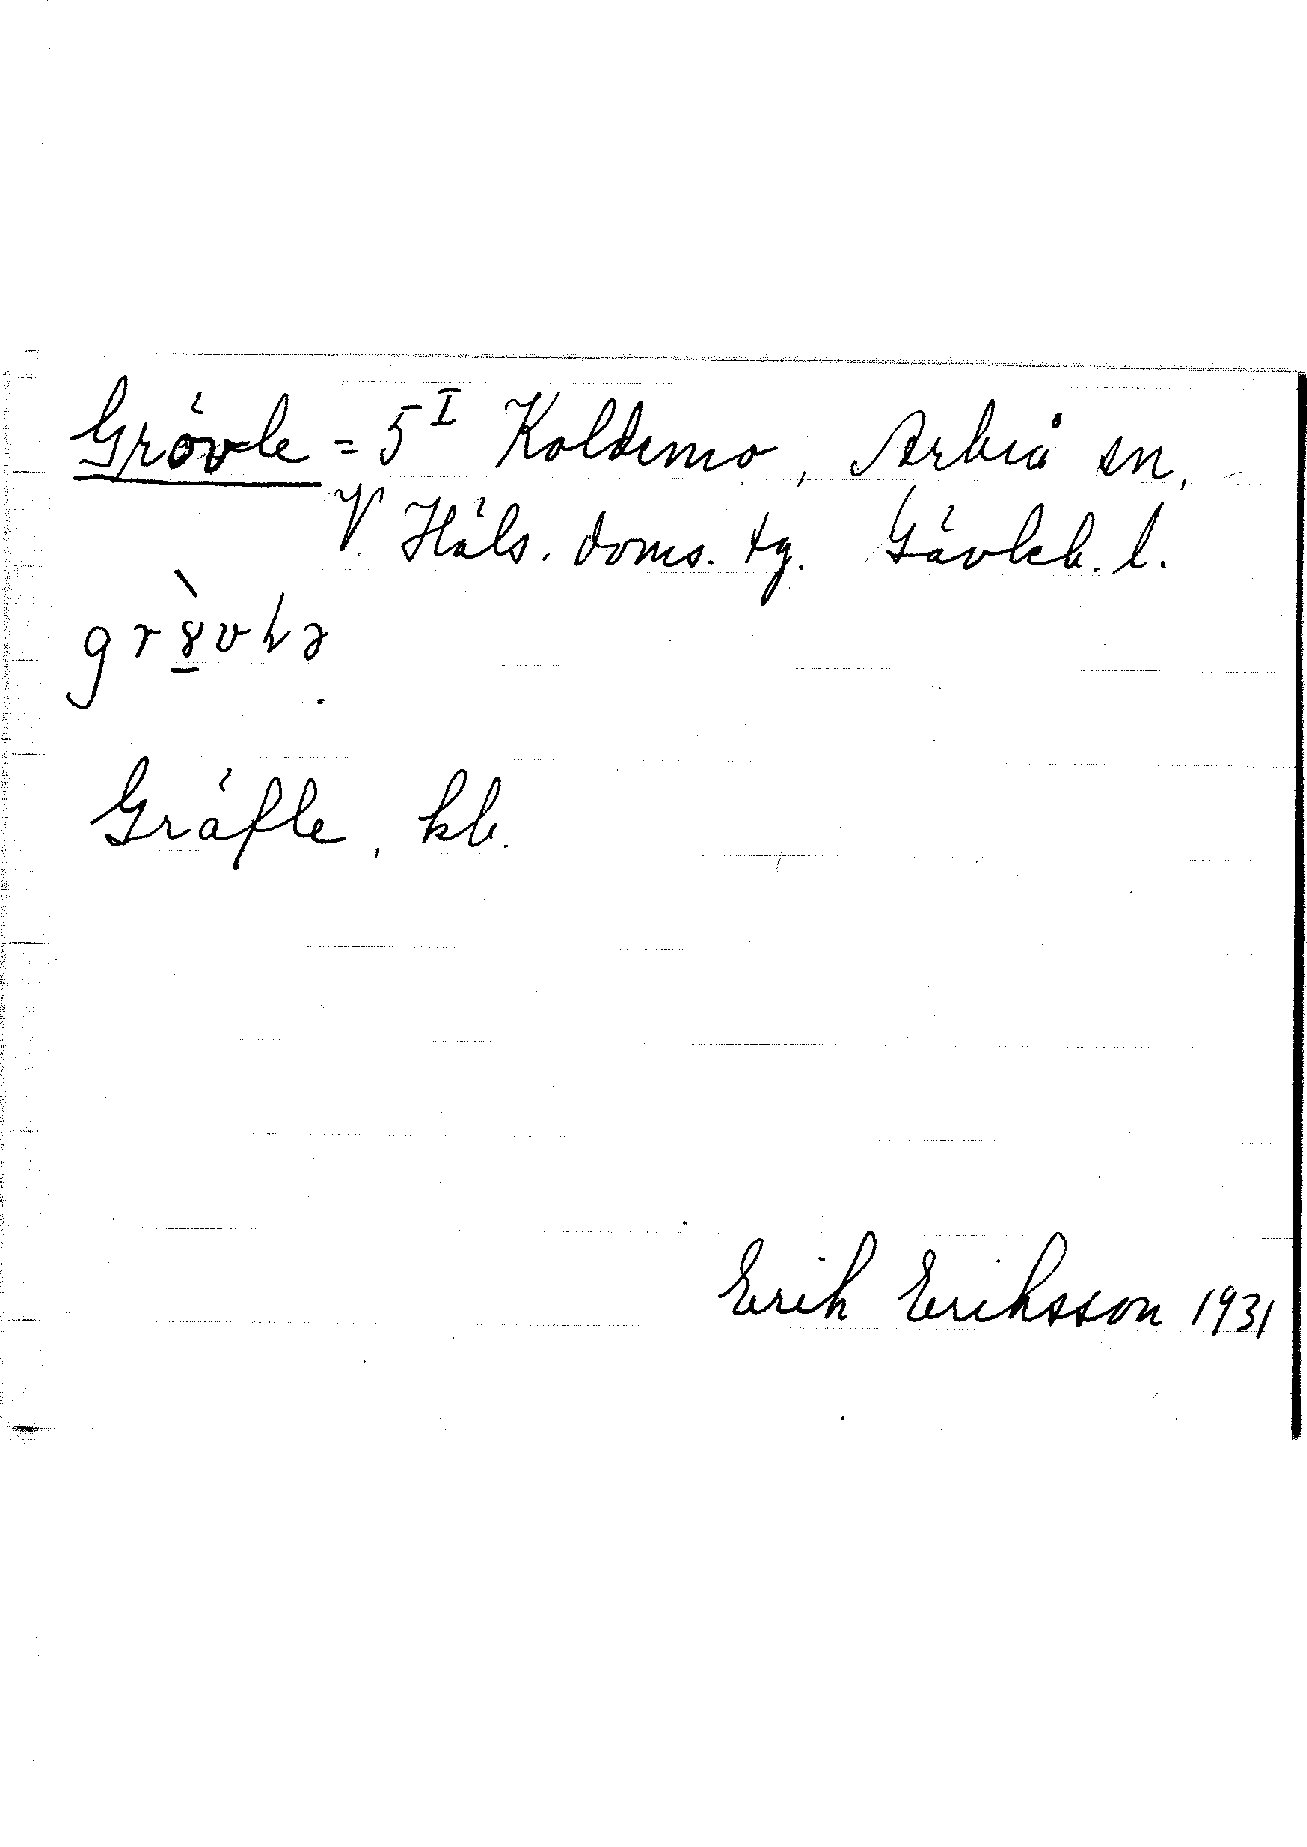 Grövle = 5^I Koldemo, Arbrå sn,
V. Häls. doms. tg. Gävleb. l.
Gräfle, kb.
Erik Eriksson 1931